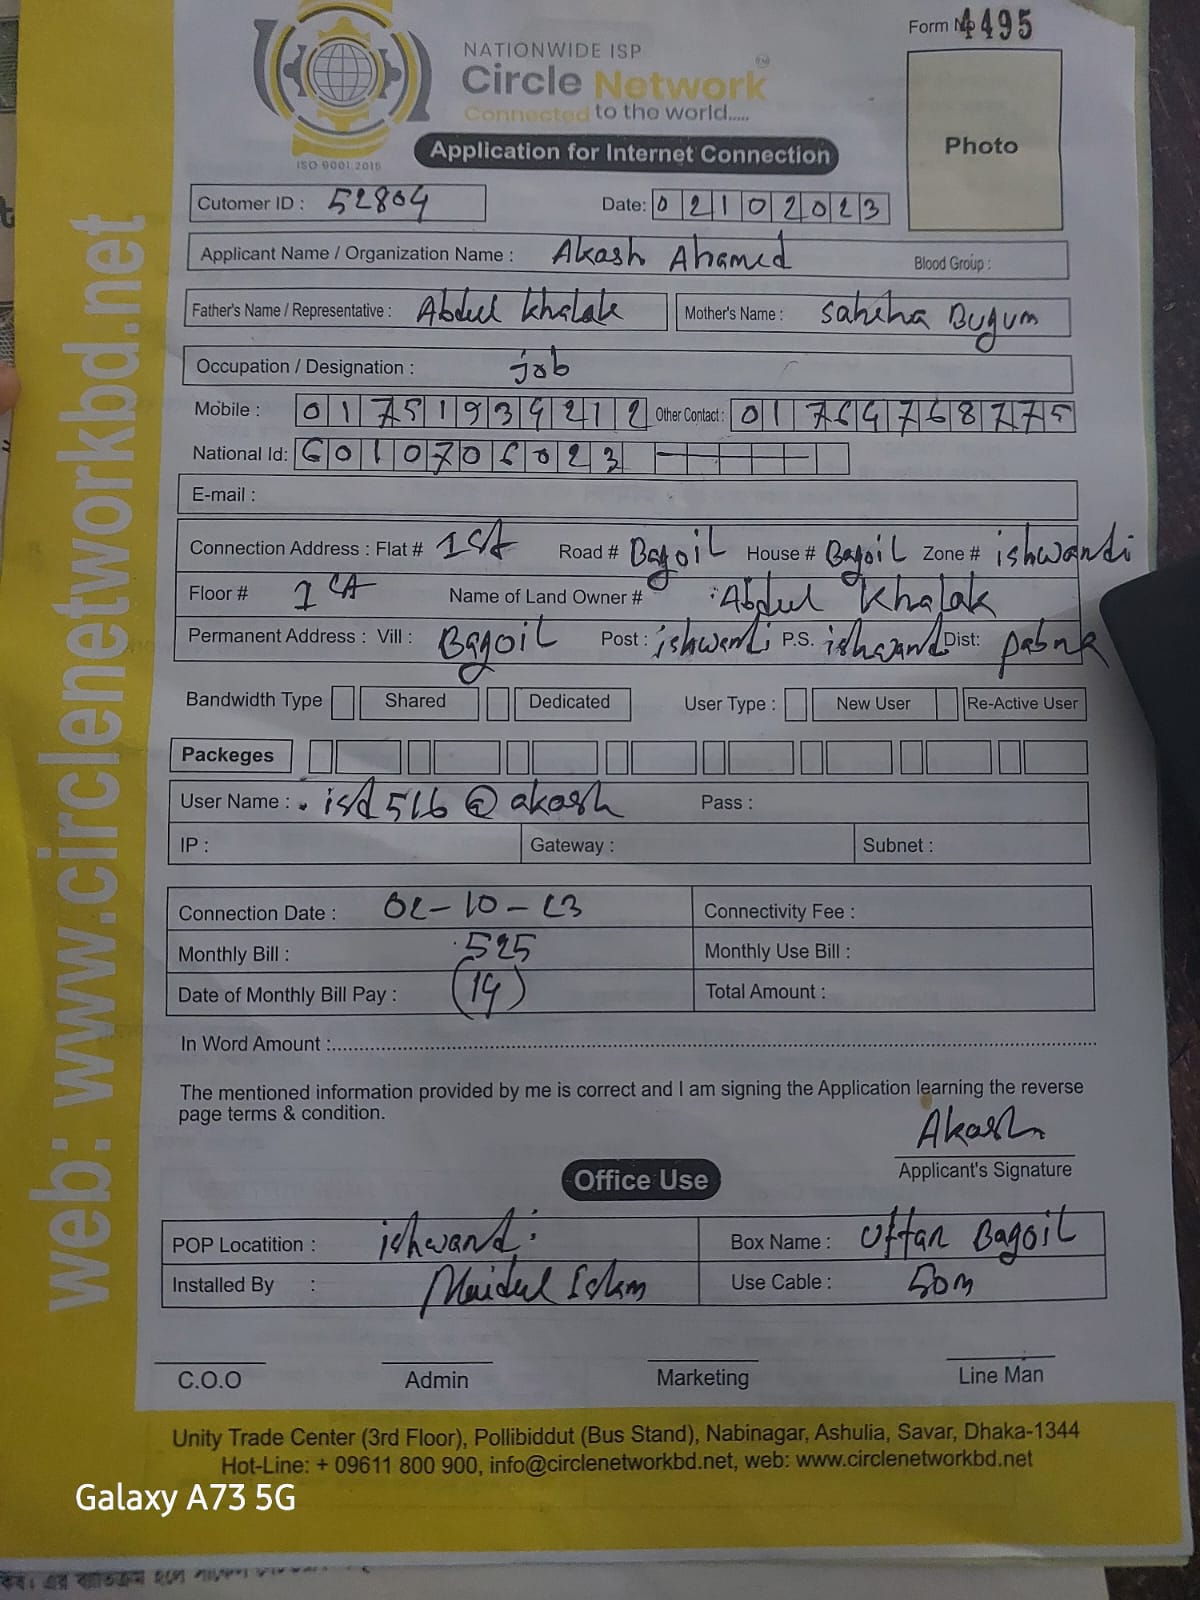 Form No 4495
NATIONWIDE ISP
Circle Network
Connected to the world.....
ISO 9001:2015
Application for Internet Connection
Photo
Cutomer ID : 52804
Date: 02102023
Applicant Name / Organization Name : Akash Ahamed Blood Group :
Father's Name / Representative : Abdul Khalak Mother's Name : Saheha Bugum
Occupation / Designation : job
Mobile : 01751939212 Other Contact : 01764768775
National Id: 6010706023
E-mail :
Connection Address : Flat # 1st Road # Bagoil House # Bagoil Zone # ishwardi
Floor # 1st Name of Land Owner # Abdul Khalak
Permanent Address : Vill : Bagoil Post : ishwardi P.S. ishwardi Dist: pabna
Bandwidth Type Shared Dedicated User Type : New User Re-Active User
Packeges
User Name : isd516@akash Pass :
IP : Gateway : Subnet :
Connection Date : 02-10-23 Connectivity Fee :
Monthly Bill : 525 Monthly Use Bill :
Date of Monthly Bill Pay : (14) Total Amount :
In Word Amount :
The mentioned information provided by me is correct and I am signing the Application learning the reverse
page terms & condition.
Akash
Applicant's Signature
Office Use
POP Locatition : ishwardi Box Name : Uttar Bagoil
Installed By : Maidul Islam Use Cable : 50m
C.O.O Admin Marketing Line Man
Unity Trade Center (3rd Floor), Pollibiddut (Bus Stand), Nabinagar, Ashulia, Savar, Dhaka-1344
Hot-Line: + 09611 800 900, info@circlenetworkbd.net, web: www.circlenetworkbd.net
web: www.circlenetworkbd.net
Galaxy A73 5G